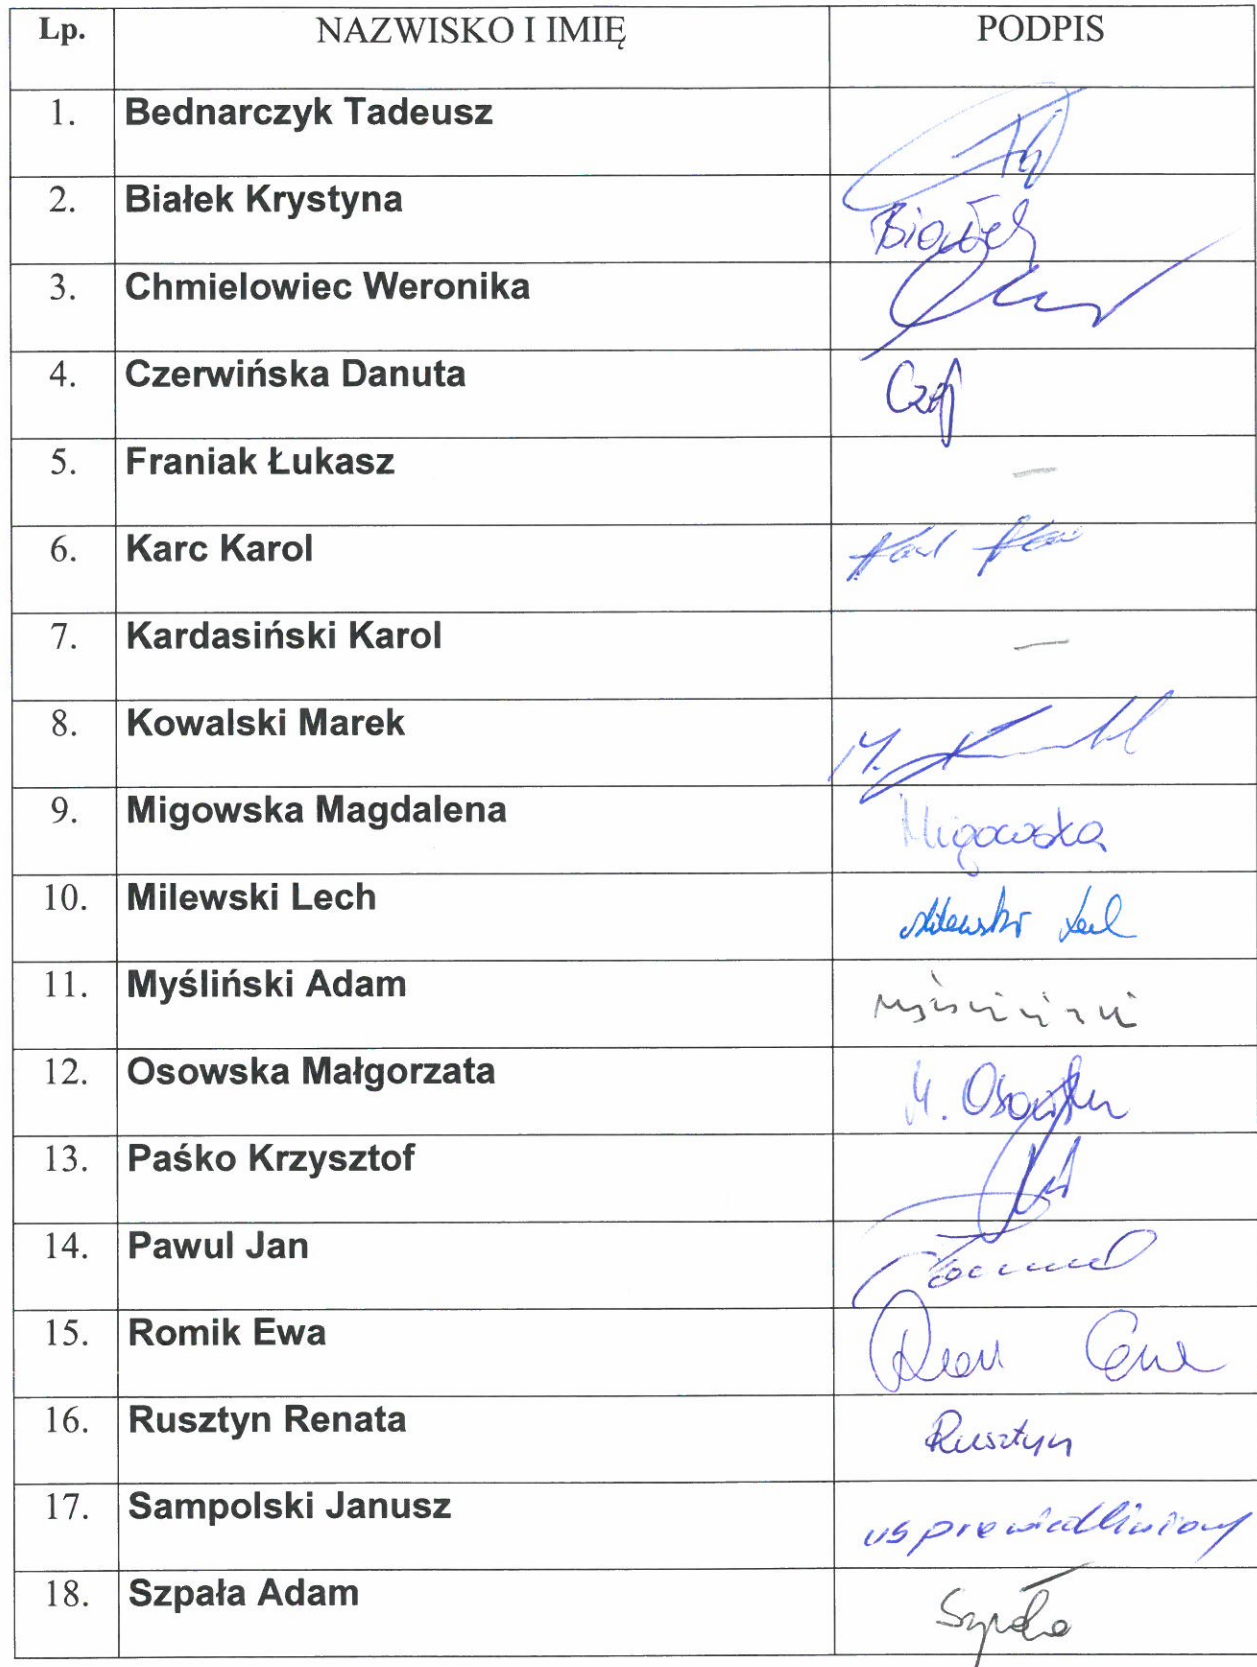 Lp. NAZWISKO I IMIĘ PODPIS
1. Bednarczyk Tadeusz
2. Białek Krystyna Białek
3. Chmielowiec Weronika
4. Czerwińska Danuta
5. Franiak Łukasz —
6. Karc Karol
7. Kardasiński Karol —
8. Kowalski Marek M.
9. Migowska Magdalena Migowska
10. Milewski Lech Milewski Lech
11. Myśliński Adam Myśliński
12. Osowska Małgorzata M. Osowska
13. Paśko Krzysztof
14. Pawul Jan
15. Romik Ewa
16. Rusztyn Renata Rusztyn
17. Sampolski Janusz usprawiedliwiony
18. Szpała Adam Szpała